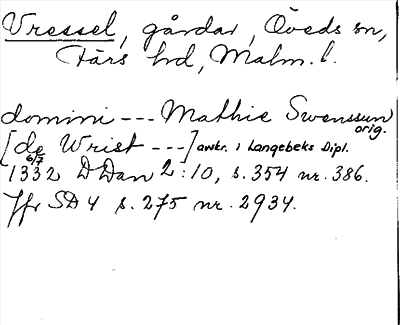 Vressel, gårdar, Öveds sn,
Färs hd, Malm. l.
domini --- Mathie Swensson
orig.
[de Wrist ---] avskr. i Langebeks Dipl.
6/7
1332 DDan 2:10, s. 354 nr. 386.
Jfr SD 4 s. 275 nr. 2934.